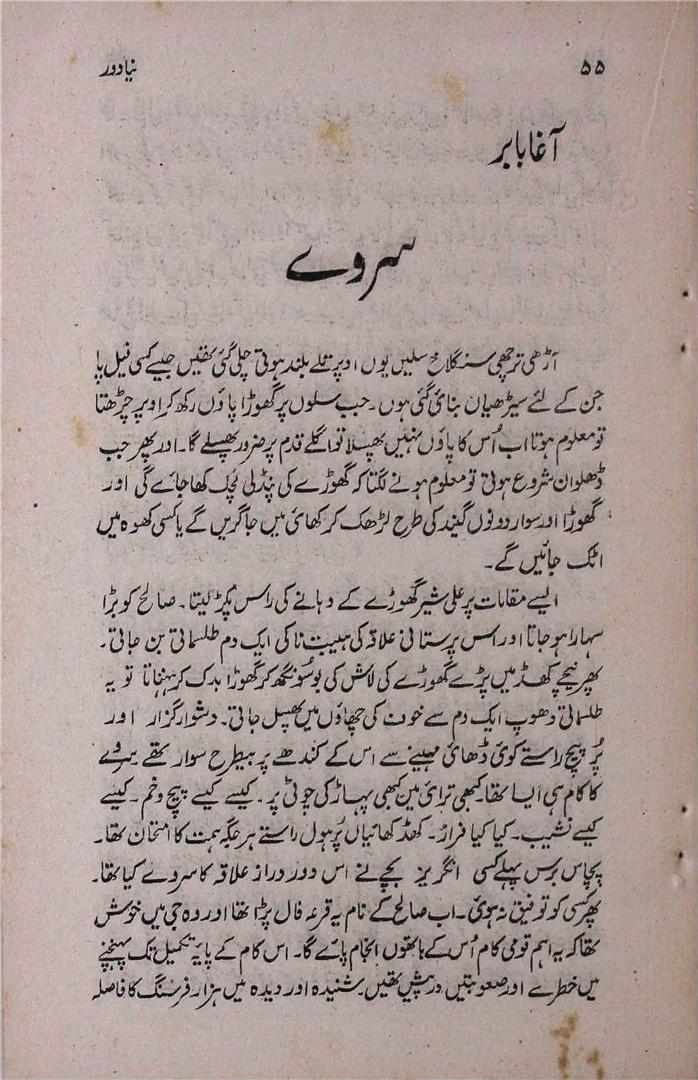 ۵۵ نیا دور
آغا بابر
سروے
آڑھی ترچھی سنگلاخ سلیں یوں اوپر تلے بلند ہوتی چلی گئی تھیں جیسے کسی فیل پا
جن کے لئے سیڑھیاں بنائی گئی ہوں۔ جب سلوں پر گھوڑا پاؤں رکھ کر اوپر چڑھتا
تو معلوم ہوتا اب اُس کا پاؤں نہیں پھسلا تو اگلے قدم پر ضرور پھسلے گا۔ اور پھر جب
ڈھلوان شروع ہوتی تو معلوم ہونے لگتا کہ گھوڑے کی پنڈلی لچک کھا جائے گی اور
گھوڑا اور سوار دونوں گیند کی طرح لڑھک کر کھائی میں جا گریں گے یا کسی کھوہ میں
اٹک جائیں گے۔
ایسے مقامات پر علی شیر گھوڑے کے دہانے کی راس پکڑ لیتا۔ صالح کو بڑا
سہارا ہو جاتا اور اس پرستانی علاقہ کی ہیبت ناکی ایک دم طلسماتی بن جاتی۔
پھر نیچے کھڈ میں پڑے گھوڑے کی لاش کی بو سونگھ کر گھوڑا بدک کر ہنہناتا تو یہ
طلسماتی دھوپ ایک دم سے خوف کی چھاؤں میں پھسل جاتی۔ دشوار گزار اور
پُر پیچ راستے کوئی ڈھائی مہینے سے اس کے کندھے پر بیطرح سوار تھے سروے
کا کام ہی ایسا تھا۔ کبھی ترائی میں کبھی پہاڑ کی چوٹی پر۔ کیسے کیسے پیچ و خم۔ کیسے
کیسے نشیب۔ کیا کیا فراز۔ کھڈ کھائیاں پُر ہول راستے ہر جگہ ہمت کا امتحان تھا۔
پچاس برس پہلے کسی انگریز بچے نے اس دور دراز علاقہ کا سروے کیا تھا۔
پھر کسی کو توفیق نہ ہوئی۔ اب صالح کے نام یہ قرعہ فال پڑا تھا اور وہ جی میں خوش
تھا کہ یہ اہم قومی کام اُس کے ہاتھوں انجام پائے گا۔ اس کام کے پایہ تکمیل تک پہنچنے
میں خطرے اور صعوبتیں درپیش تھیں۔ شنیدہ اور دیدہ میں ہزار فرسنگ کا فاصلہ